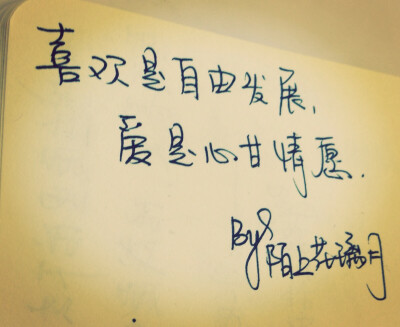 喜欢是自由发展,
爱是心甘情愿.
By 陌上花 月